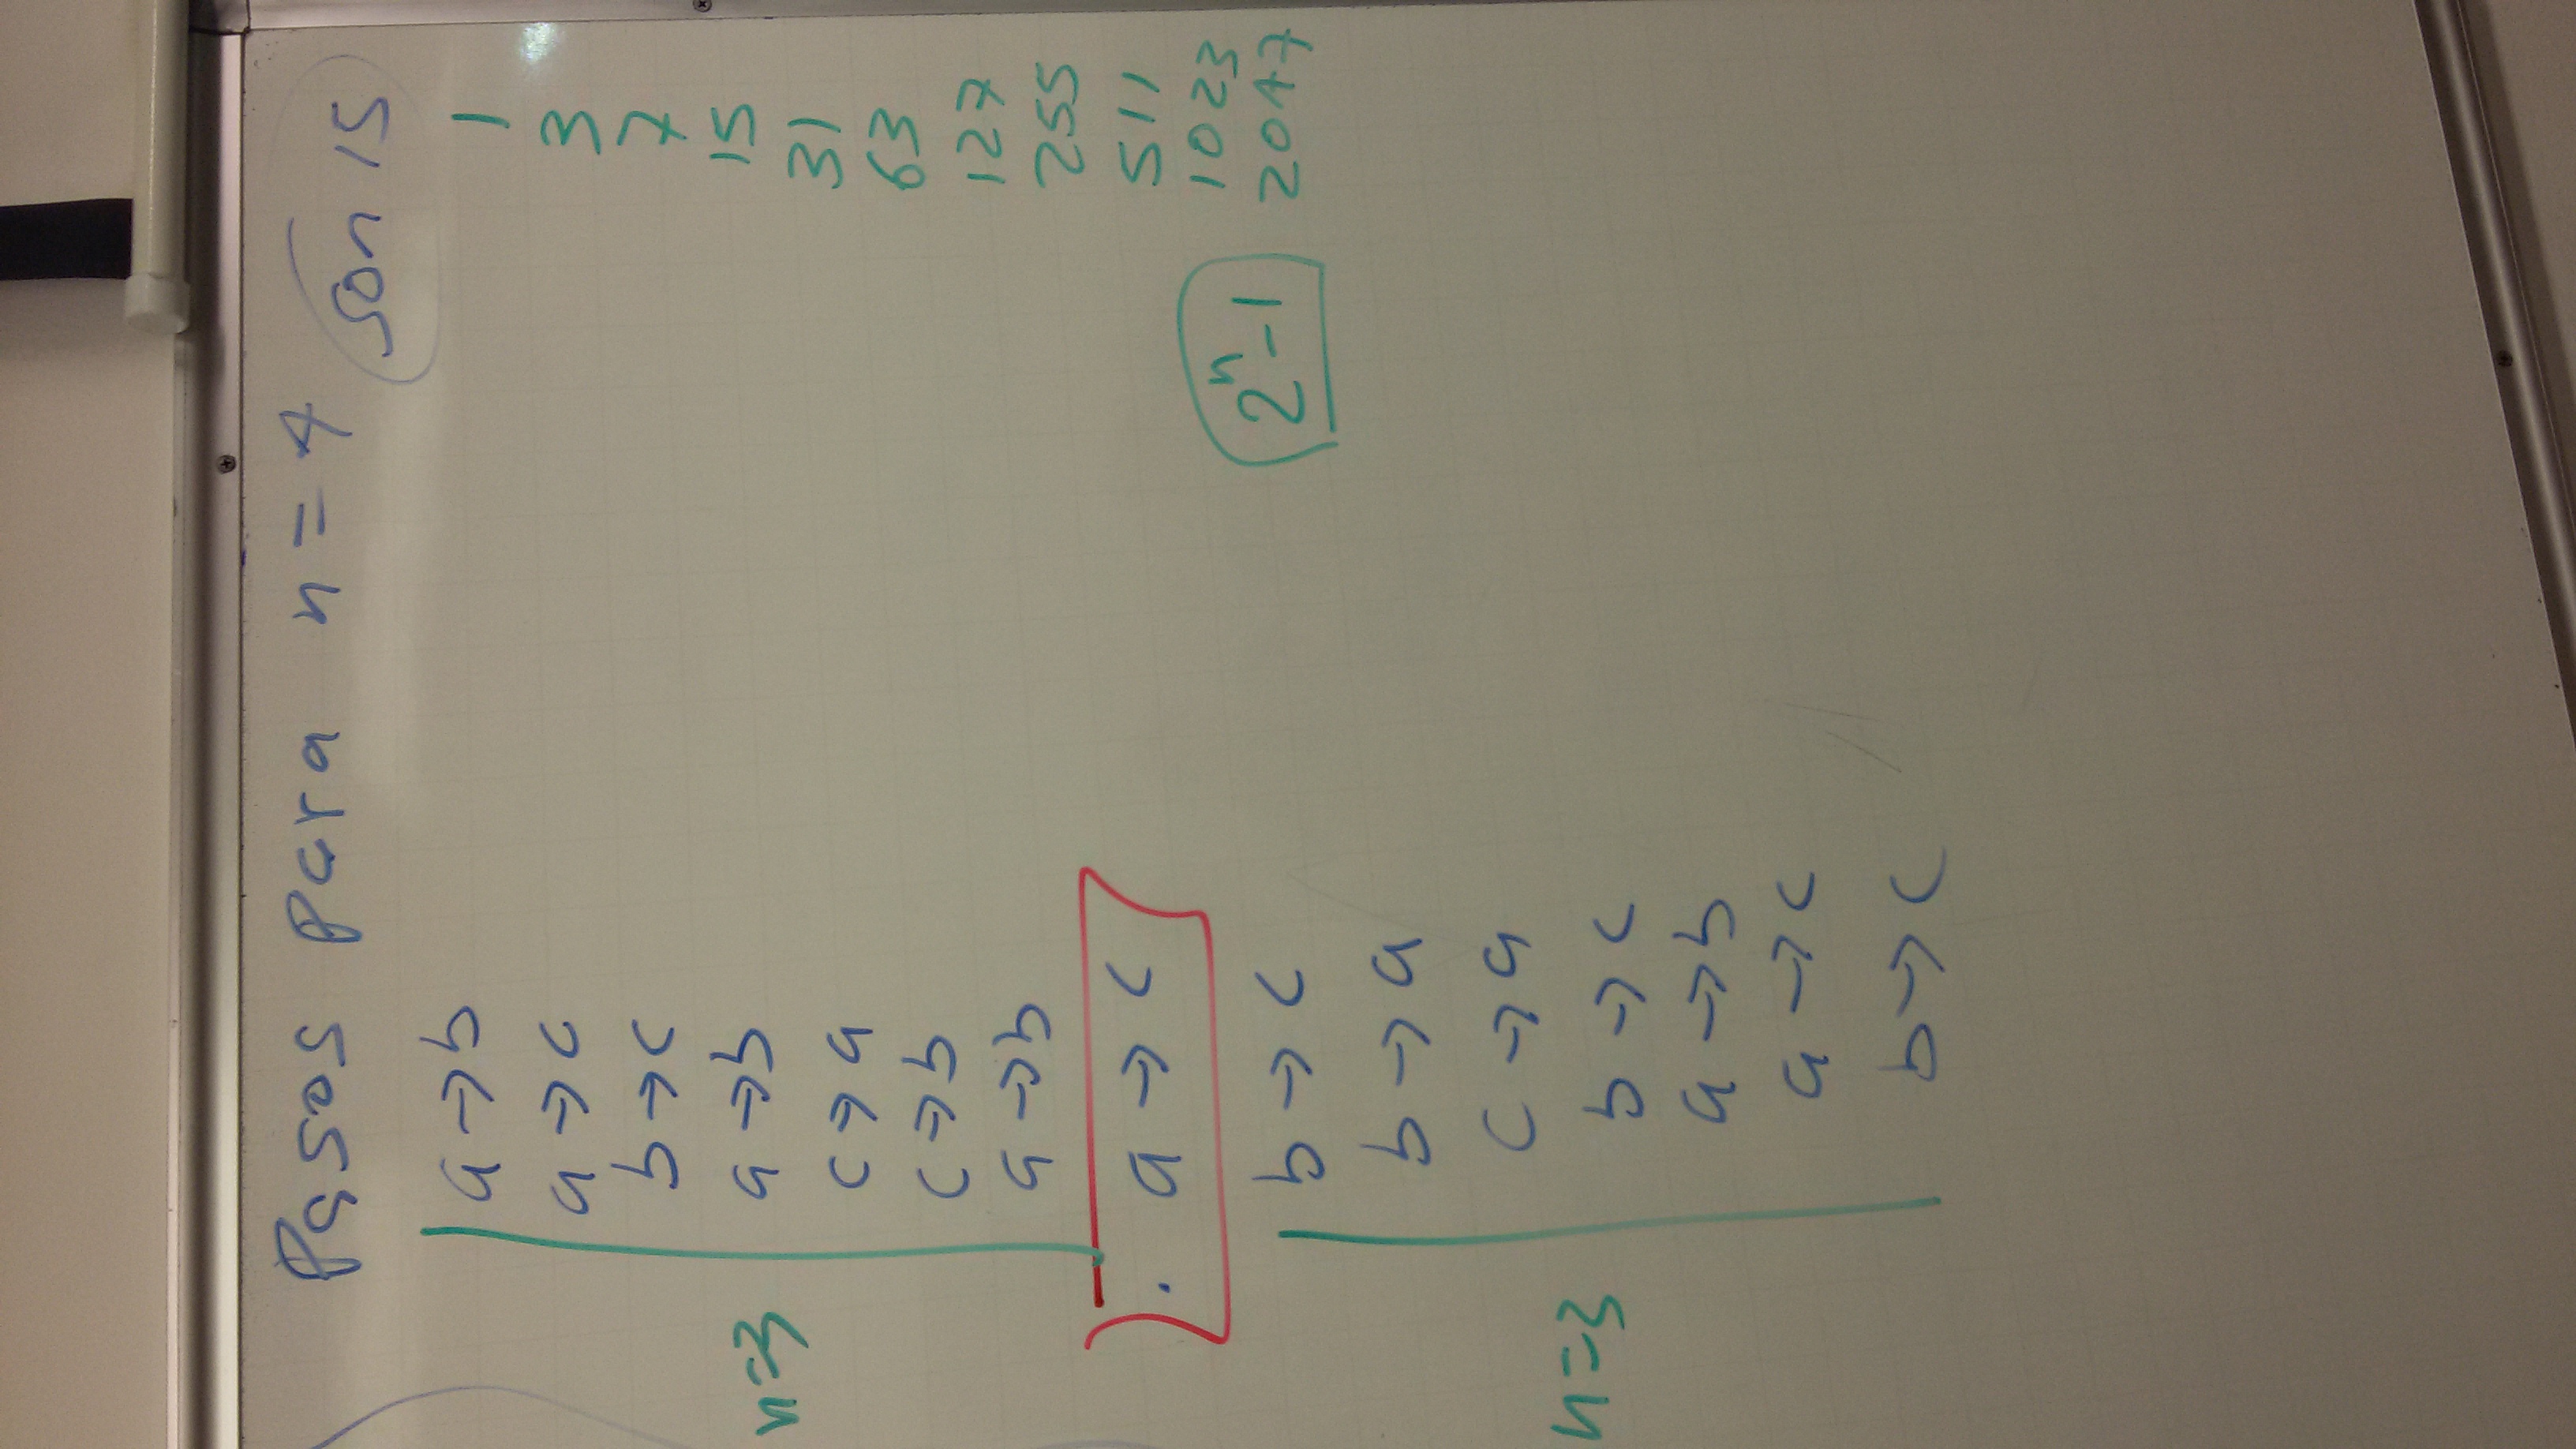 Pasos para n = 4
son 15
a → b
a → c
b → c
a → b
n=3
c → a
c → b
a → b
. a → c
b → c
b → a
c → a
n=3
b → c
a → b
a → c
b → c
1
3
7
15
31
63
127
255
511
1023
2047
2ⁿ-1